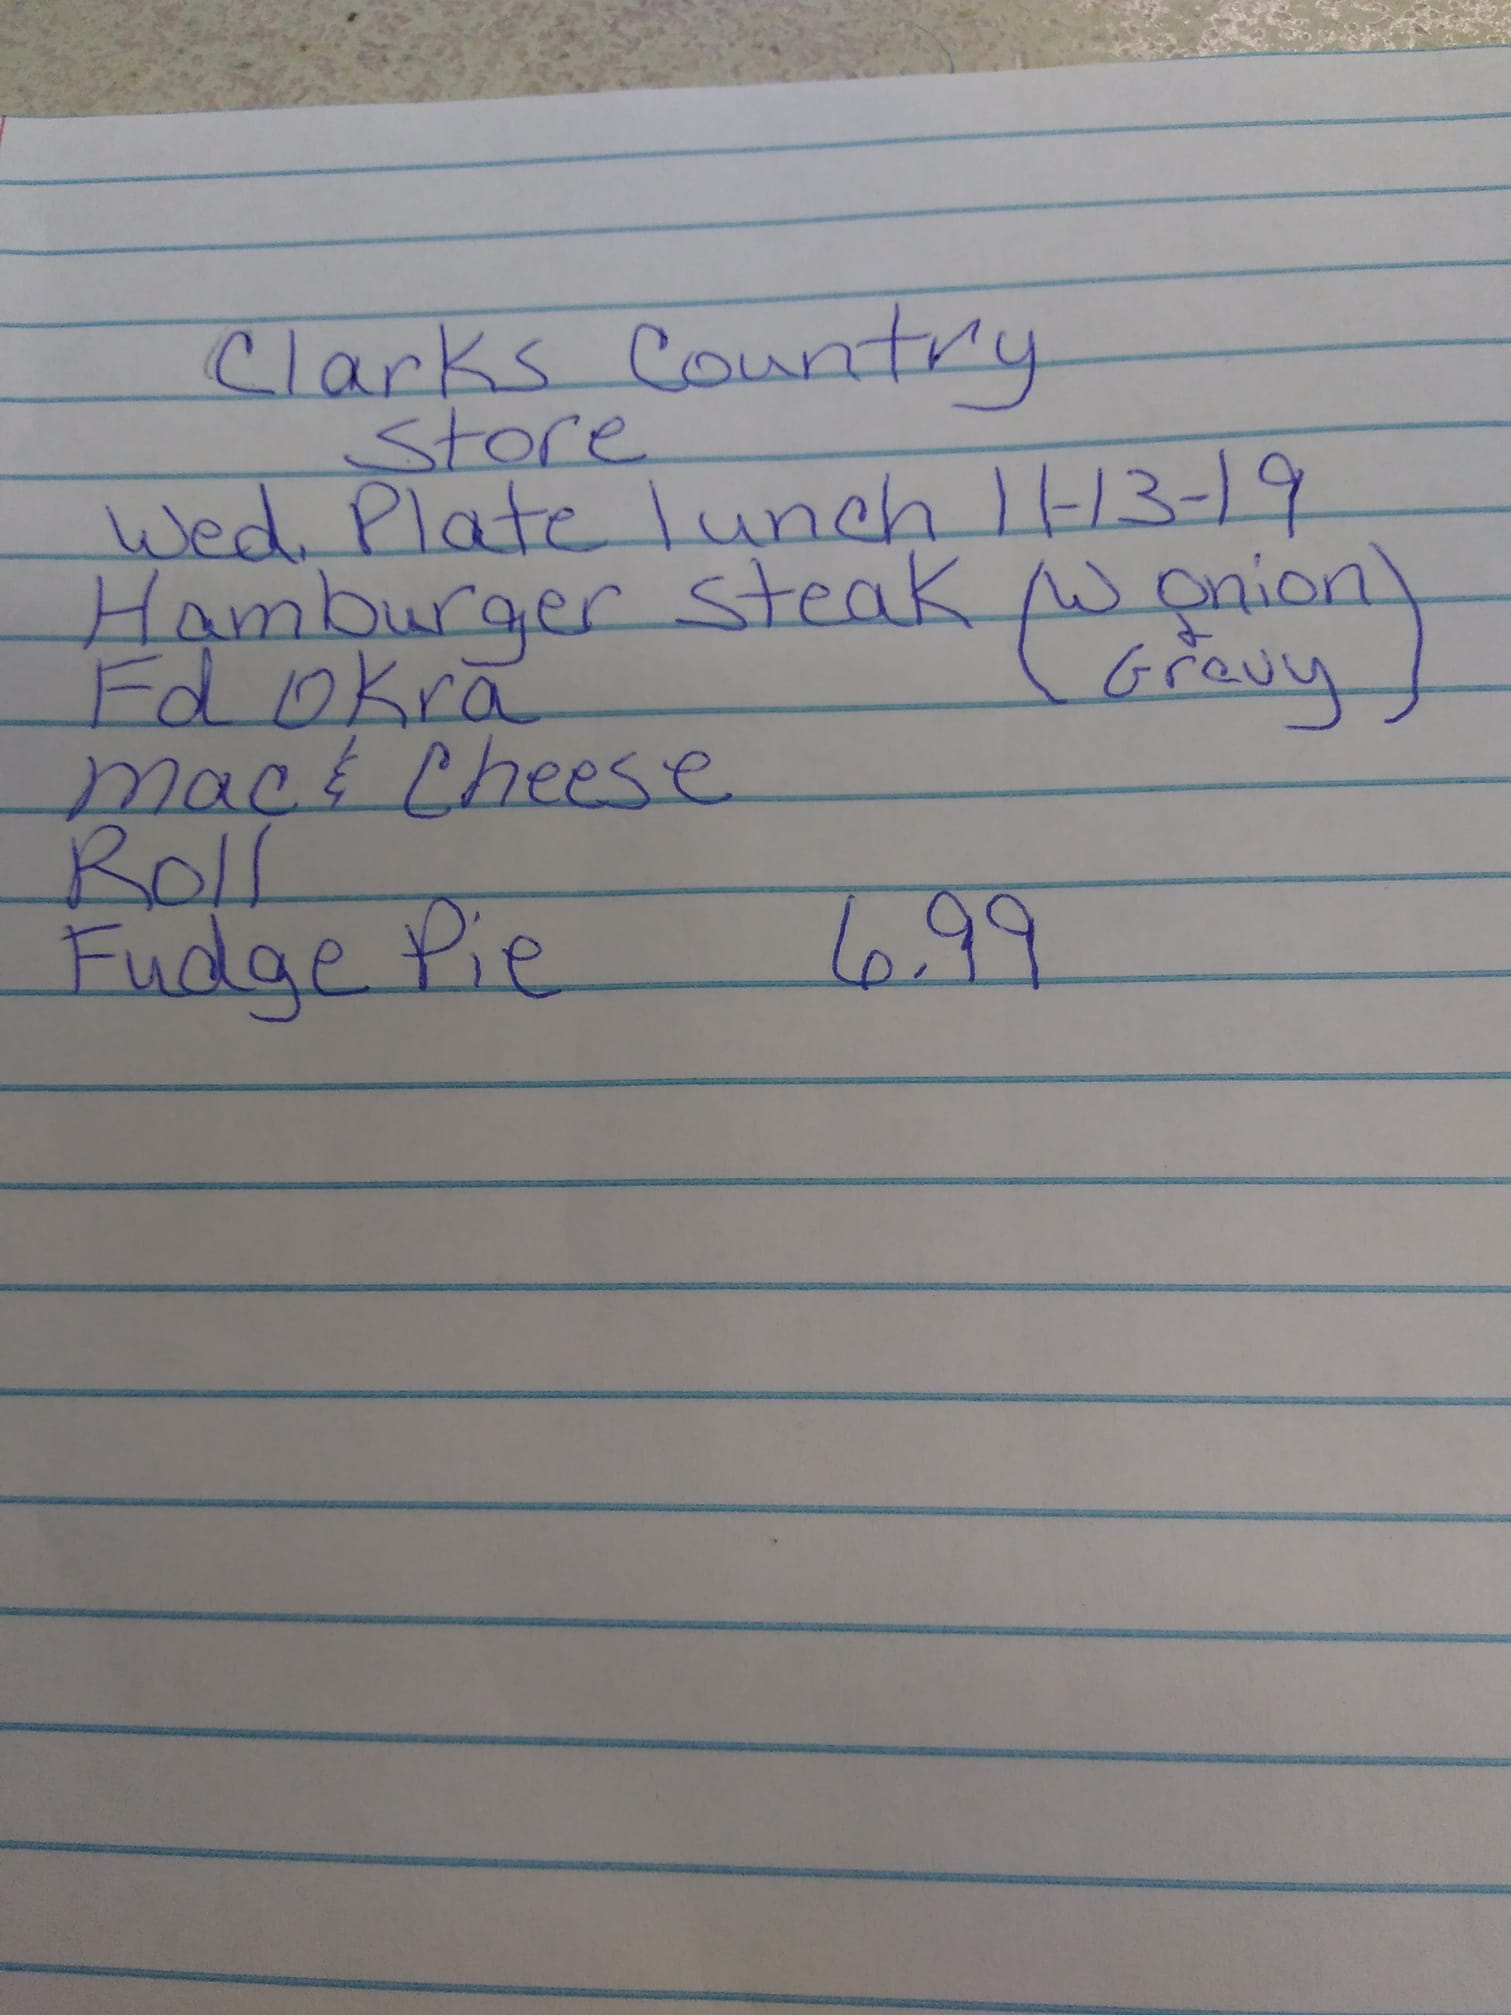 Clarks Country
Store
Wed. Plate lunch 11-13-19
Hamburger Steak (W onion
& Gravy)
Fd Okra
Mac & Cheese
Roll
Fudge Pie 6.99